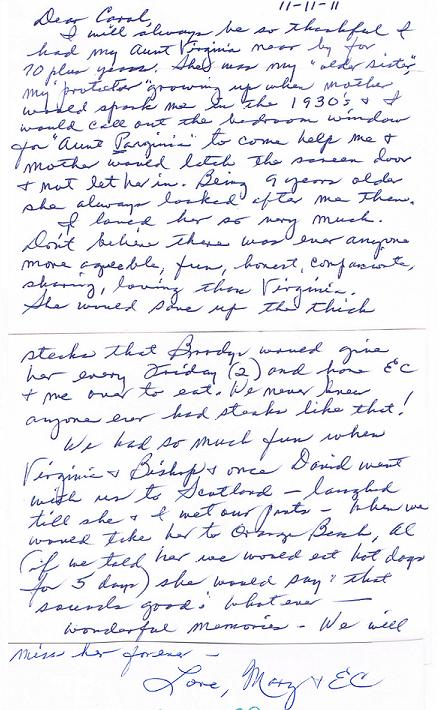 11-11-11
Dear Carol,
I will always be so thankful I
had my Aunt Virginia near by for
70 plus years. She was my "older sister",
my "protector" growing up when mother
would spank me in the 1930's & I
would call out the bedroom window
for "Aunt Parginia" to come help me &
mother would latch the screen door
& not let her in. Being 9 years older
she always looked after me then.
I loved her so very much.
Don't believe there was ever anyone
more agreeable, fun, honest, compassionate,
sharing, loving than Virginia.
She would save up the thick
steaks that Brodys would give
her every Friday (2) and have EC
& me over to eat. We never knew
anyone ever had steaks like that!
We had so much fun when
Virginia & Bishop & once David went
with us to Scotland - laughed
till she & I wet our pants - When we
would take her to Orange Beach, AL
(if we told her we would eat hot dogs
for 5 days) she would say "that
sounds good" whatever -
wonderful memories - We will
miss her forever -
Love, Mary & EC